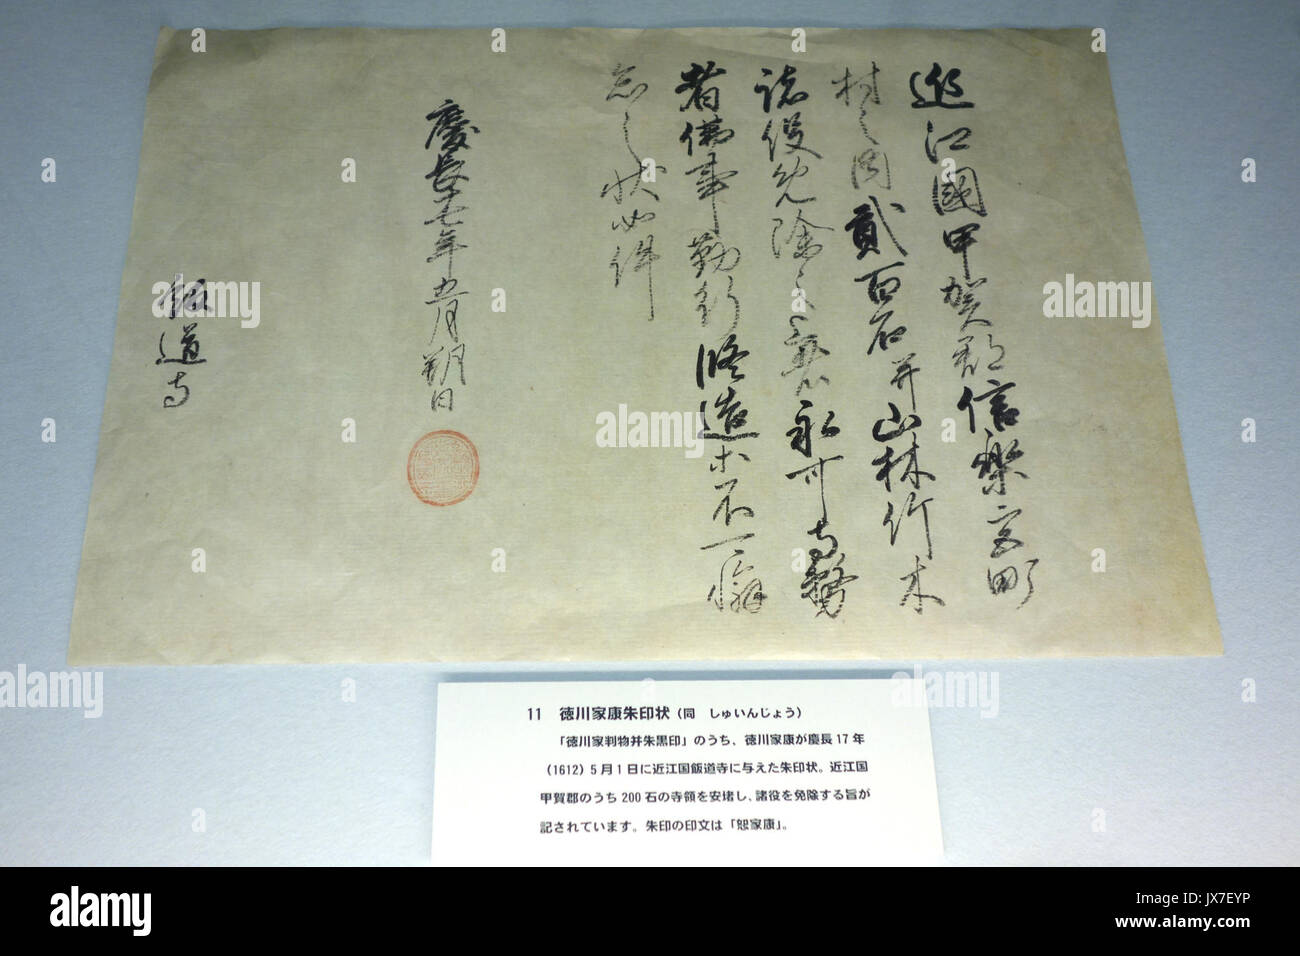 近江國甲賀郡信樂宮町
村之内貳百石并山林竹木
諸役免除之訖永可寺務
者佛事勤行脩造等不可懈
怠之状如件
慶長十七年五月朔日
飯道寺
11 徳川家康朱印状（同 しゅいんじょう）
「徳川家判物并朱黒印」のうち、徳川家康が慶長17年
（1612）5月1日に近江国飯道寺に与えた朱印状。近江国
甲賀郡のうち200石の寺領を安堵し、諸役を免除する旨が
記されています。朱印の印文は「恕家康」。
alamy
alamy stock photo
alamy
Image ID: JX7EYP
www.alamy.com